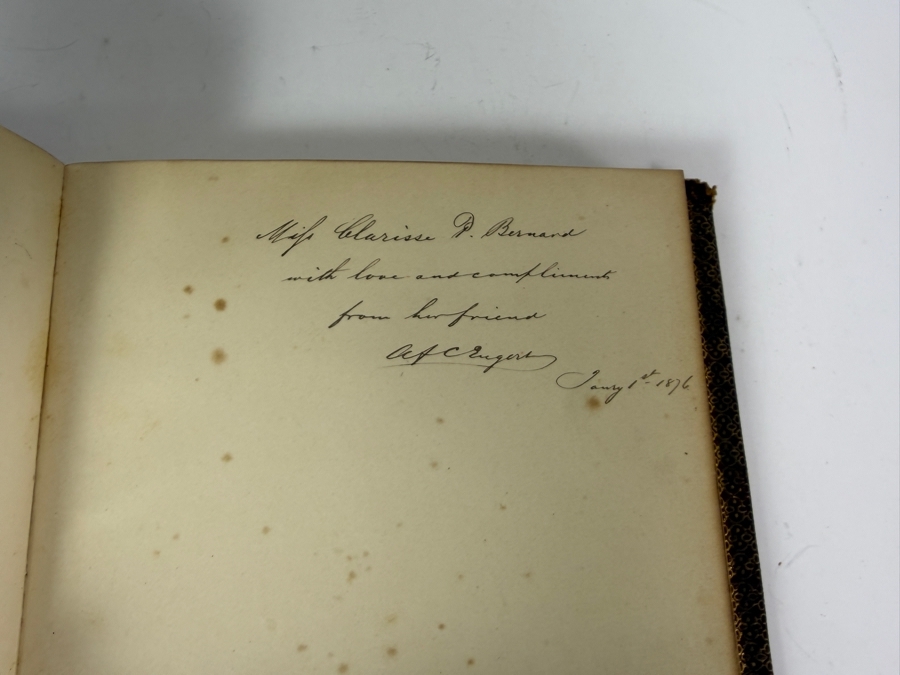 Miss Clarisse P. Bernard
with love and compliments
from her friend
A f C Engert
Jany 1st 1876